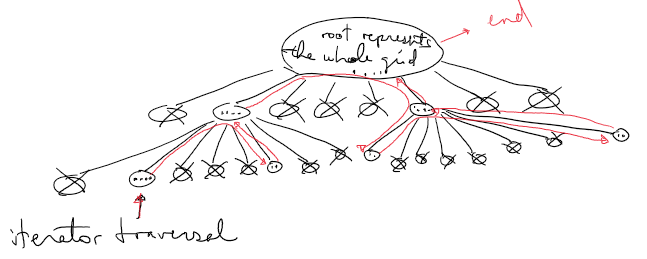 end
root represents
the whole grid
.....
iterator traversal